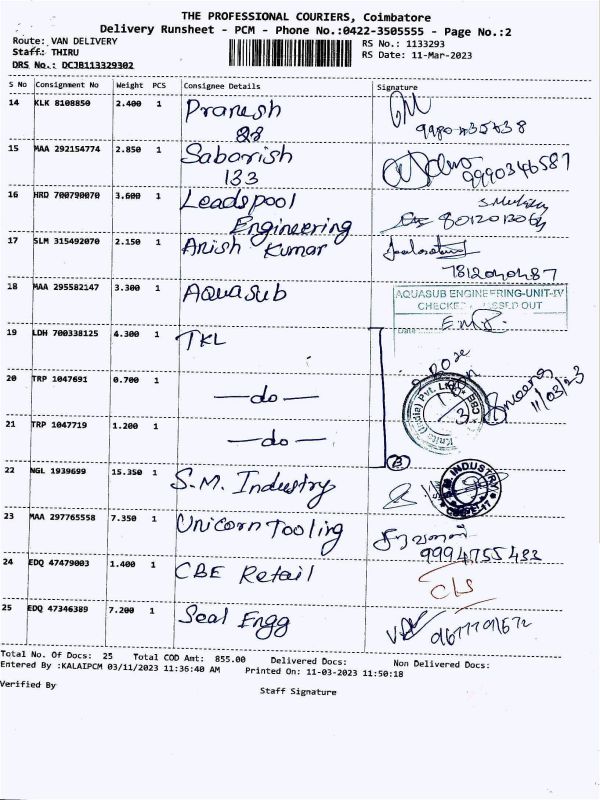 THE PROFESSIONAL COURIERS, Coimbatore
Delivery Runsheet - PCM - Phone No.:0422-3505555 - Page No.:2
Route: VAN DELIVERY
RS No.: 1133293
Staff: THIRU
RS Date: 11-Mar-2023
DRS No.: DCJB113329302
S No Consignment No Weight PCS Consignee Details Signature
14 KLK 8108850 2.400 1 Pranesh
15 MAA 292154774 2.850 1 Sabarish 9990346587
133
16 HRD 700790070 3.600 1 Leadspool
Engineering
17 SLM 315492070 2.150 1 Anish Kumar
18 MAA 295582147 3.300 1 Aquasub
AQUASUB ENGINEERING-UNIT-IV
19 LDH 700338125 4.300 1 TKL
20 TRP 1047691 0.700 1 —do—
11/03/23
21 TRP 1047719 1.200 1 —do—
22 NGL 1939699 15.350 1 S.M. Industry
S.M. INDUSTRY
23 MAA 297765558 7.350 1 Unicorn Tooling
9994755433
24 EDQ 47479003 1.400 1 CBE Retail
25 EDQ 47346389 7.200 1 Seal Engg
Total No. Of Docs: 25 Total COD Amt: 855.00 Delivered Docs: Non Delivered Docs:
Entered By :KALAIPCM 03/11/2023 11:36:40 AM Printed On: 11-03-2023 11:50:18
Verified By Staff Signature